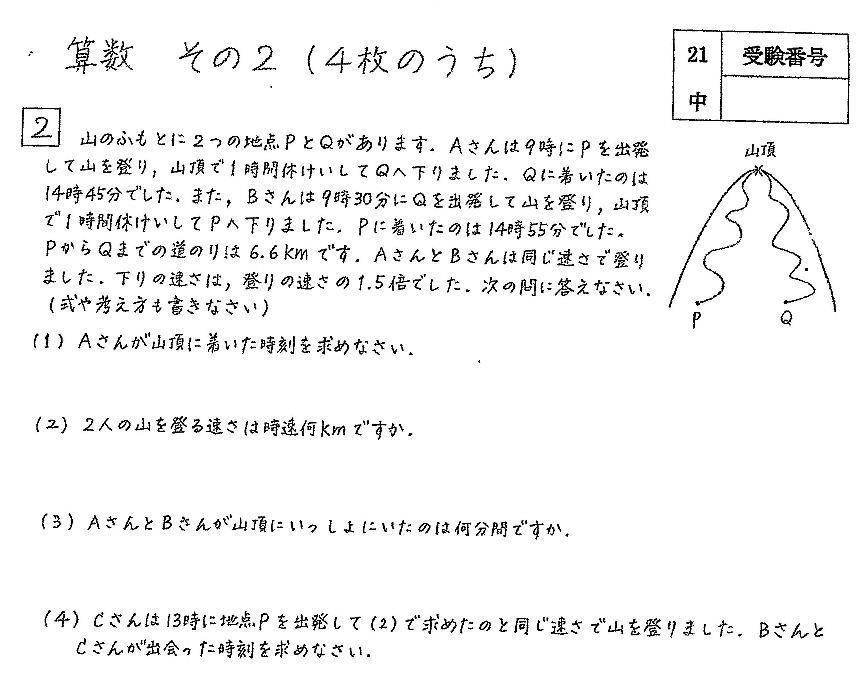 算数 その2 (4枚のうち)
21中 受験番号
2 山のふもとに2つの地点PとQがあります. Aさんは9時にPを出発
して山を登り, 山頂で1時間休けいしてQへ下りました. Qに着いたのは
14時45分でした. また, Bさんは9時30分にQを出発して山を登り, 山頂
で1時間休けいしてPへ下りました. Pに着いたのは14時55分でした.
PからQまでの道のりは6.6kmです. AさんとBさんは同じ速さで登り
ました. 下りの速さは, 登りの速さの1.5倍でした. 次の問に答えなさい.
(式や考え方も書きなさい)
山頂
P
Q
(1) Aさんが山頂に着いた時刻を求めなさい.
(2) 2人の山を登る速さは時速何kmですか.
(3) AさんとBさんが山頂にいっしょにいたのは何分間ですか.
(4) Cさんは13時に地点Pを出発して(2)で求めたのと同じ速さで山を登りました. Bさんと
Cさんが出会った時刻を求めなさい.